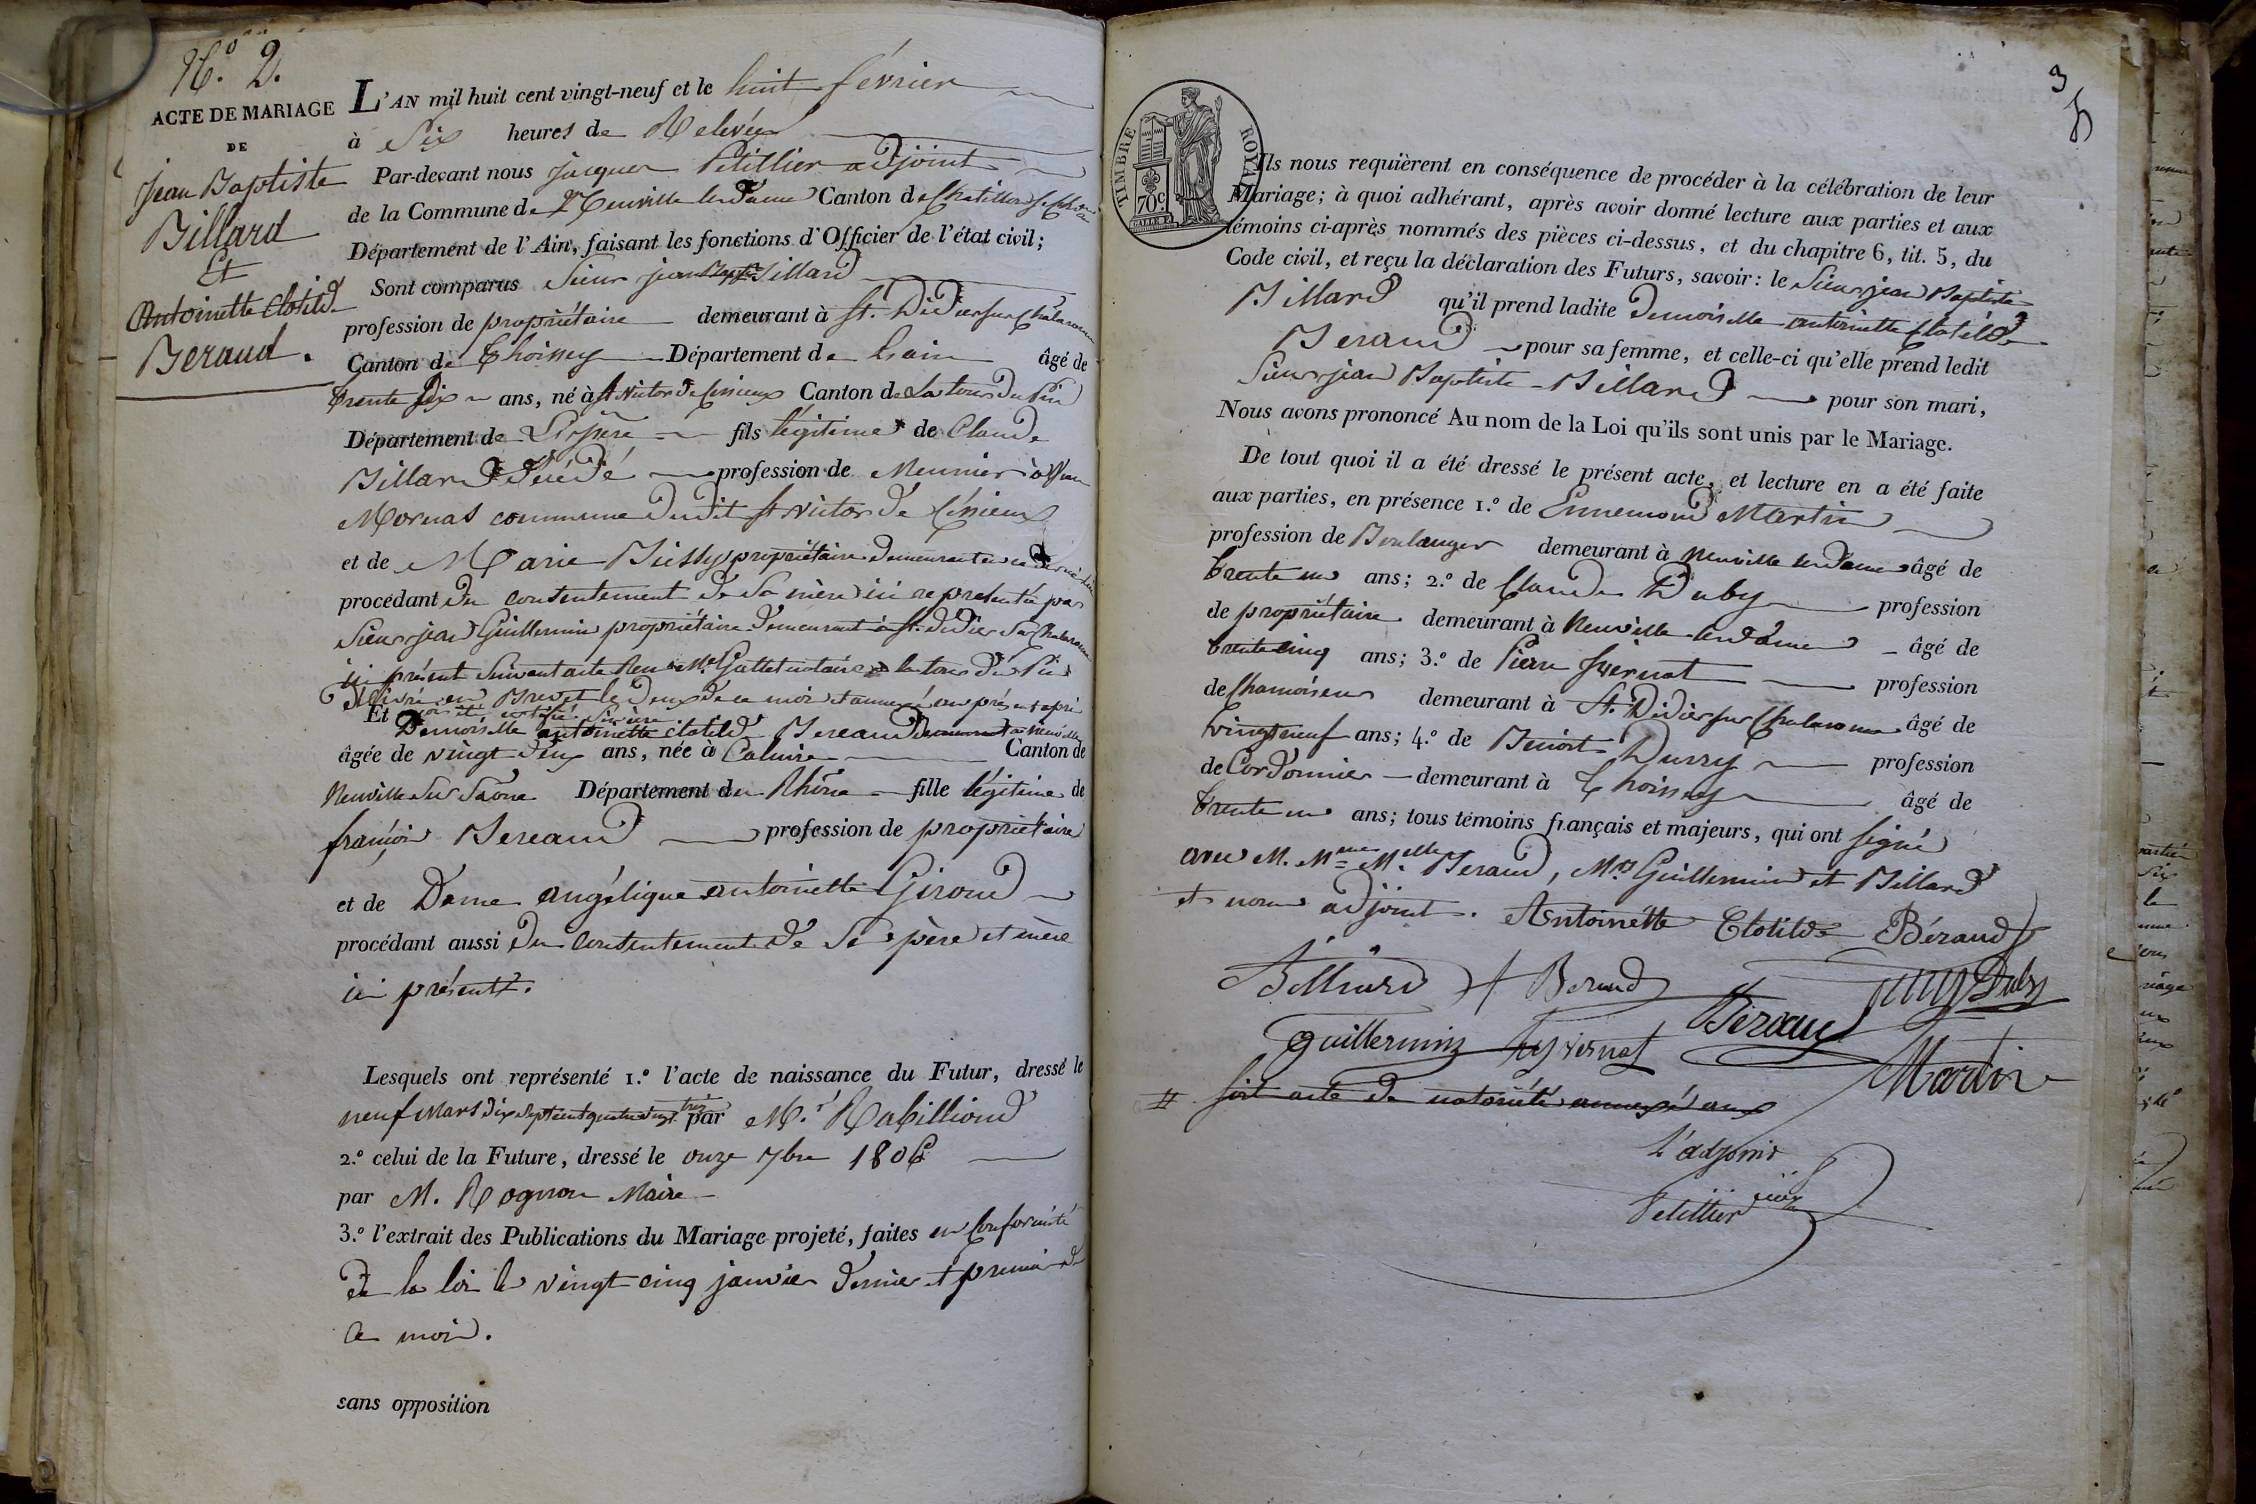 N.o 2.
ACTE DE MARIAGE
DE
jean Baptiste
Billard
Et
Antoinette Clotilde
Beraud.
L'AN mil huit cent vingt-neuf et le huit février
à Six heures de Relevée
Par-devant nous jacques Petillier adjoint
de la Commune de Neuville les dames Canton de Chatillon
Département de l'Ain, faisant les fonctions d'Officier de l'état civil;
Sont comparus Sieur jean Bapte Billard
profession de propriétaire demeurant à St. Didier sur Chalaronne
Canton de Thoissey Département de L'ain âgé de
trente six ans, né à St Victor de Cessieux Canton de La tour du Pin
Département de L'isère fils légitime de Claude
Billard décédé profession de Meunier
Mornas commune dudit St Victor de Cessieux
et de Marie Bussy propriétaire demeurante
procédant du consentement de Sa mère ici representée par
Sieur jean Guillermin propriétaire demeurant à St. didier Sur Chalaronne
ici présent Suivant acte Reçu Me. Gallet notaire à la tour du Pin
délivré en Brevet le deux de ce mois et annexé au présent après
Et Demoiselle antoinette clotilde Bereaud demeurant à Neuville
âgée de vingt deux ans, née à Caluire Canton de
Neuville Sur Saône Département du Rhône fille légitime de
françois Bereaud profession de propriétaire
et de Dame angélique antoinette Giroud
procédant aussi du consentement de Ses père et mère
ici présents.
Lesquels ont représenté 1.o l'acte de naissance du Futur, dressé le
neuf Mars dix sept cent quatre vingt treize par Mr. Rabillioud
2.o celui de la Future, dressé le onze 7bre 1806
par M. Rognon Maire
3.o l'extrait des Publications du Mariage projeté, faites en Conformité
de la loi le vingt cinq janvier dernier et premier de
ce mois.
sans opposition
3
TIMBRE ROYAL
70c
Ils nous requièrent en conséquence de procéder à la célébration de leur
Mariage; à quoi adhérant, après avoir donné lecture aux parties et aux
témoins ci-après nommés des pièces ci-dessus, et du chapitre 6, tit. 5, du
Code civil, et reçu la déclaration des Futurs, savoir: le Sieur jean Baptiste
Billard qu'il prend ladite Demoiselle antoinette Clotilde
Beraud pour sa femme, et celle-ci qu'elle prend ledit
Sieur jean Baptiste Billard pour son mari,
Nous avons prononcé Au nom de la Loi qu'ils sont unis par le Mariage.
De tout quoi il a été dressé le présent acte, et lecture en a été faite
aux parties, en présence 1.o de Ennemond Martin
profession de Boulanger demeurant à Neuville les dames âgé de
trente un ans; 2.o de Claude Duby profession
de propriétaire demeurant à Neuville les dames âgé de
trente cinq ans; 3.o de Pierre profession
de Chamoiseur demeurant à St. Didier sur Chalaronne âgé de
vingt neuf ans; 4.o de Benoit Durry profession
de Cordonnier demeurant à Thoissey âgé de
trente un ans; tous témoins français et majeurs, qui ont Signé
avec M. Mme Melle Beraud, Mrs Guillermin et Billard
et nous adjoint. Antoinette Clotilde Béraud
Billiard A Beraud Duby
guillermin Béraud
Martin
# soit acte de notoriété annexé aux
L'adjoint
Petillier